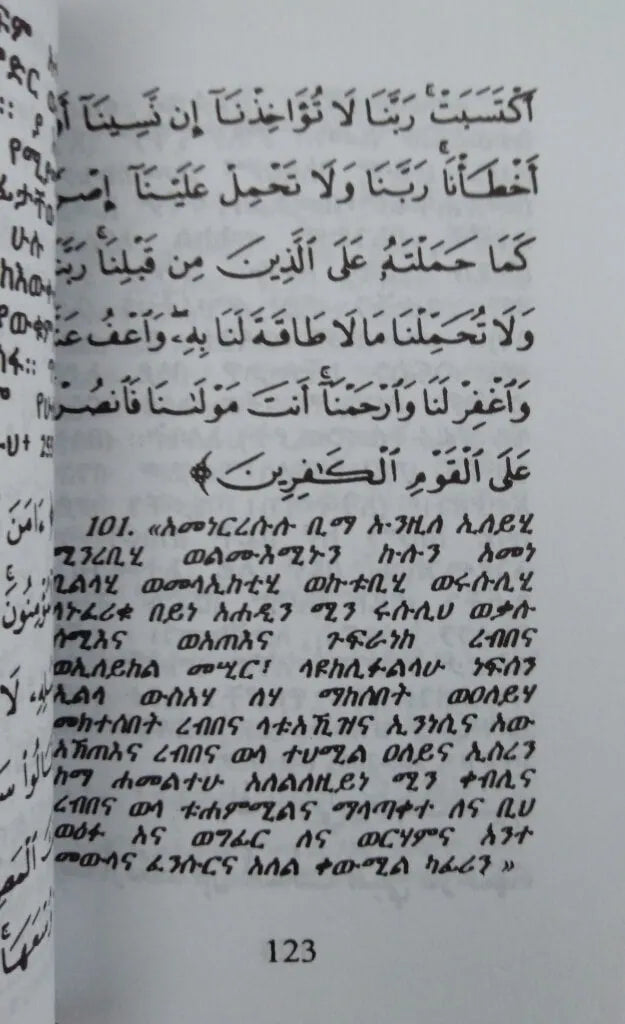 ٱكْتَسَبَتْ ۗ رَبَّنَا لَا تُؤَاخِذْنَآ إِن نَّسِينَآ أَوْ
أَخْطَأْنَا ۚ رَبَّنَا وَلَا تَحْمِلْ عَلَيْنَآ إِصْر
كَمَا حَمَلْتَهُۥ عَلَى ٱلَّذِينَ مِن قَبْلِنَا ۚ رَبَّ
وَلَا تُحَمِّلْنَا مَا لَا طَاقَةَ لَنَا بِهِۦ ۖ وَٱعْفُ عَن
وَٱغْفِرْ لَنَا وَٱرْحَمْنَآ ۚ أَنتَ مَوْلَىٰنَا فَٱنصُرْ
عَلَى ٱلْقَوْمِ ٱلْكَٰفِرِينَ ﴾
101. «አመነርረሱሉ ቢማ ኡንዚለ ኢለይሂ
ሚንረቢሂ ወልሙእሚኑን ኩሉን አመነ
ቢልላሂ ወመላኢከቲሂ ወኩቱቢሂ ወሩሱሊሂ
ላኑፈሪቁ በይነ አሐዲን ሚን ሩሱሊሀ ወቃሉ
ሰሚእና ወአጠእና ጉፍራነከ ረብበና
ወኢለይከል መሢር፣ ላዩከሊፉልላሁ ነፍሰን
ኢልላ ውስአሃ ለሃ ማከሰበት ወዐለይሃ
መክተሰበት ረብበና ላቱአኺዝና ኢንነሲና አው
አኽጠእና ረብበና ወላ ተህሚል ዐለይና ኢስረን
ከማ ሐመልተሁ አለልለዚይነ ሚን ቀብሊና
ረብበና ወላ ቱሐምሚልና ማላጣቀተ ለና ቢሀ
ወዕፉ አና ወግፊር ለና ወርሃምና አንተ
መውላና ፈንሱርና አለል ቀውሚል ካፊሪን »
123